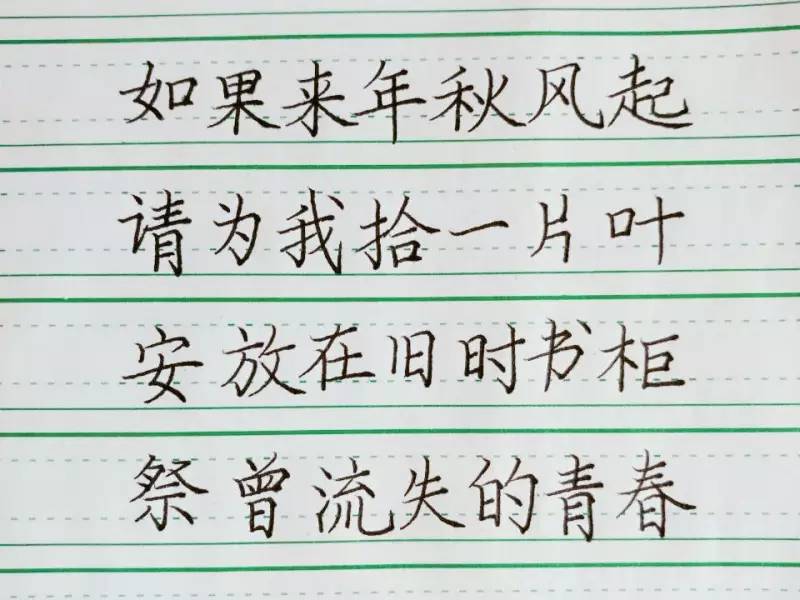 如果来年秋风起
请为我拾一片叶
安放在旧时书柜
祭曾流失的青春